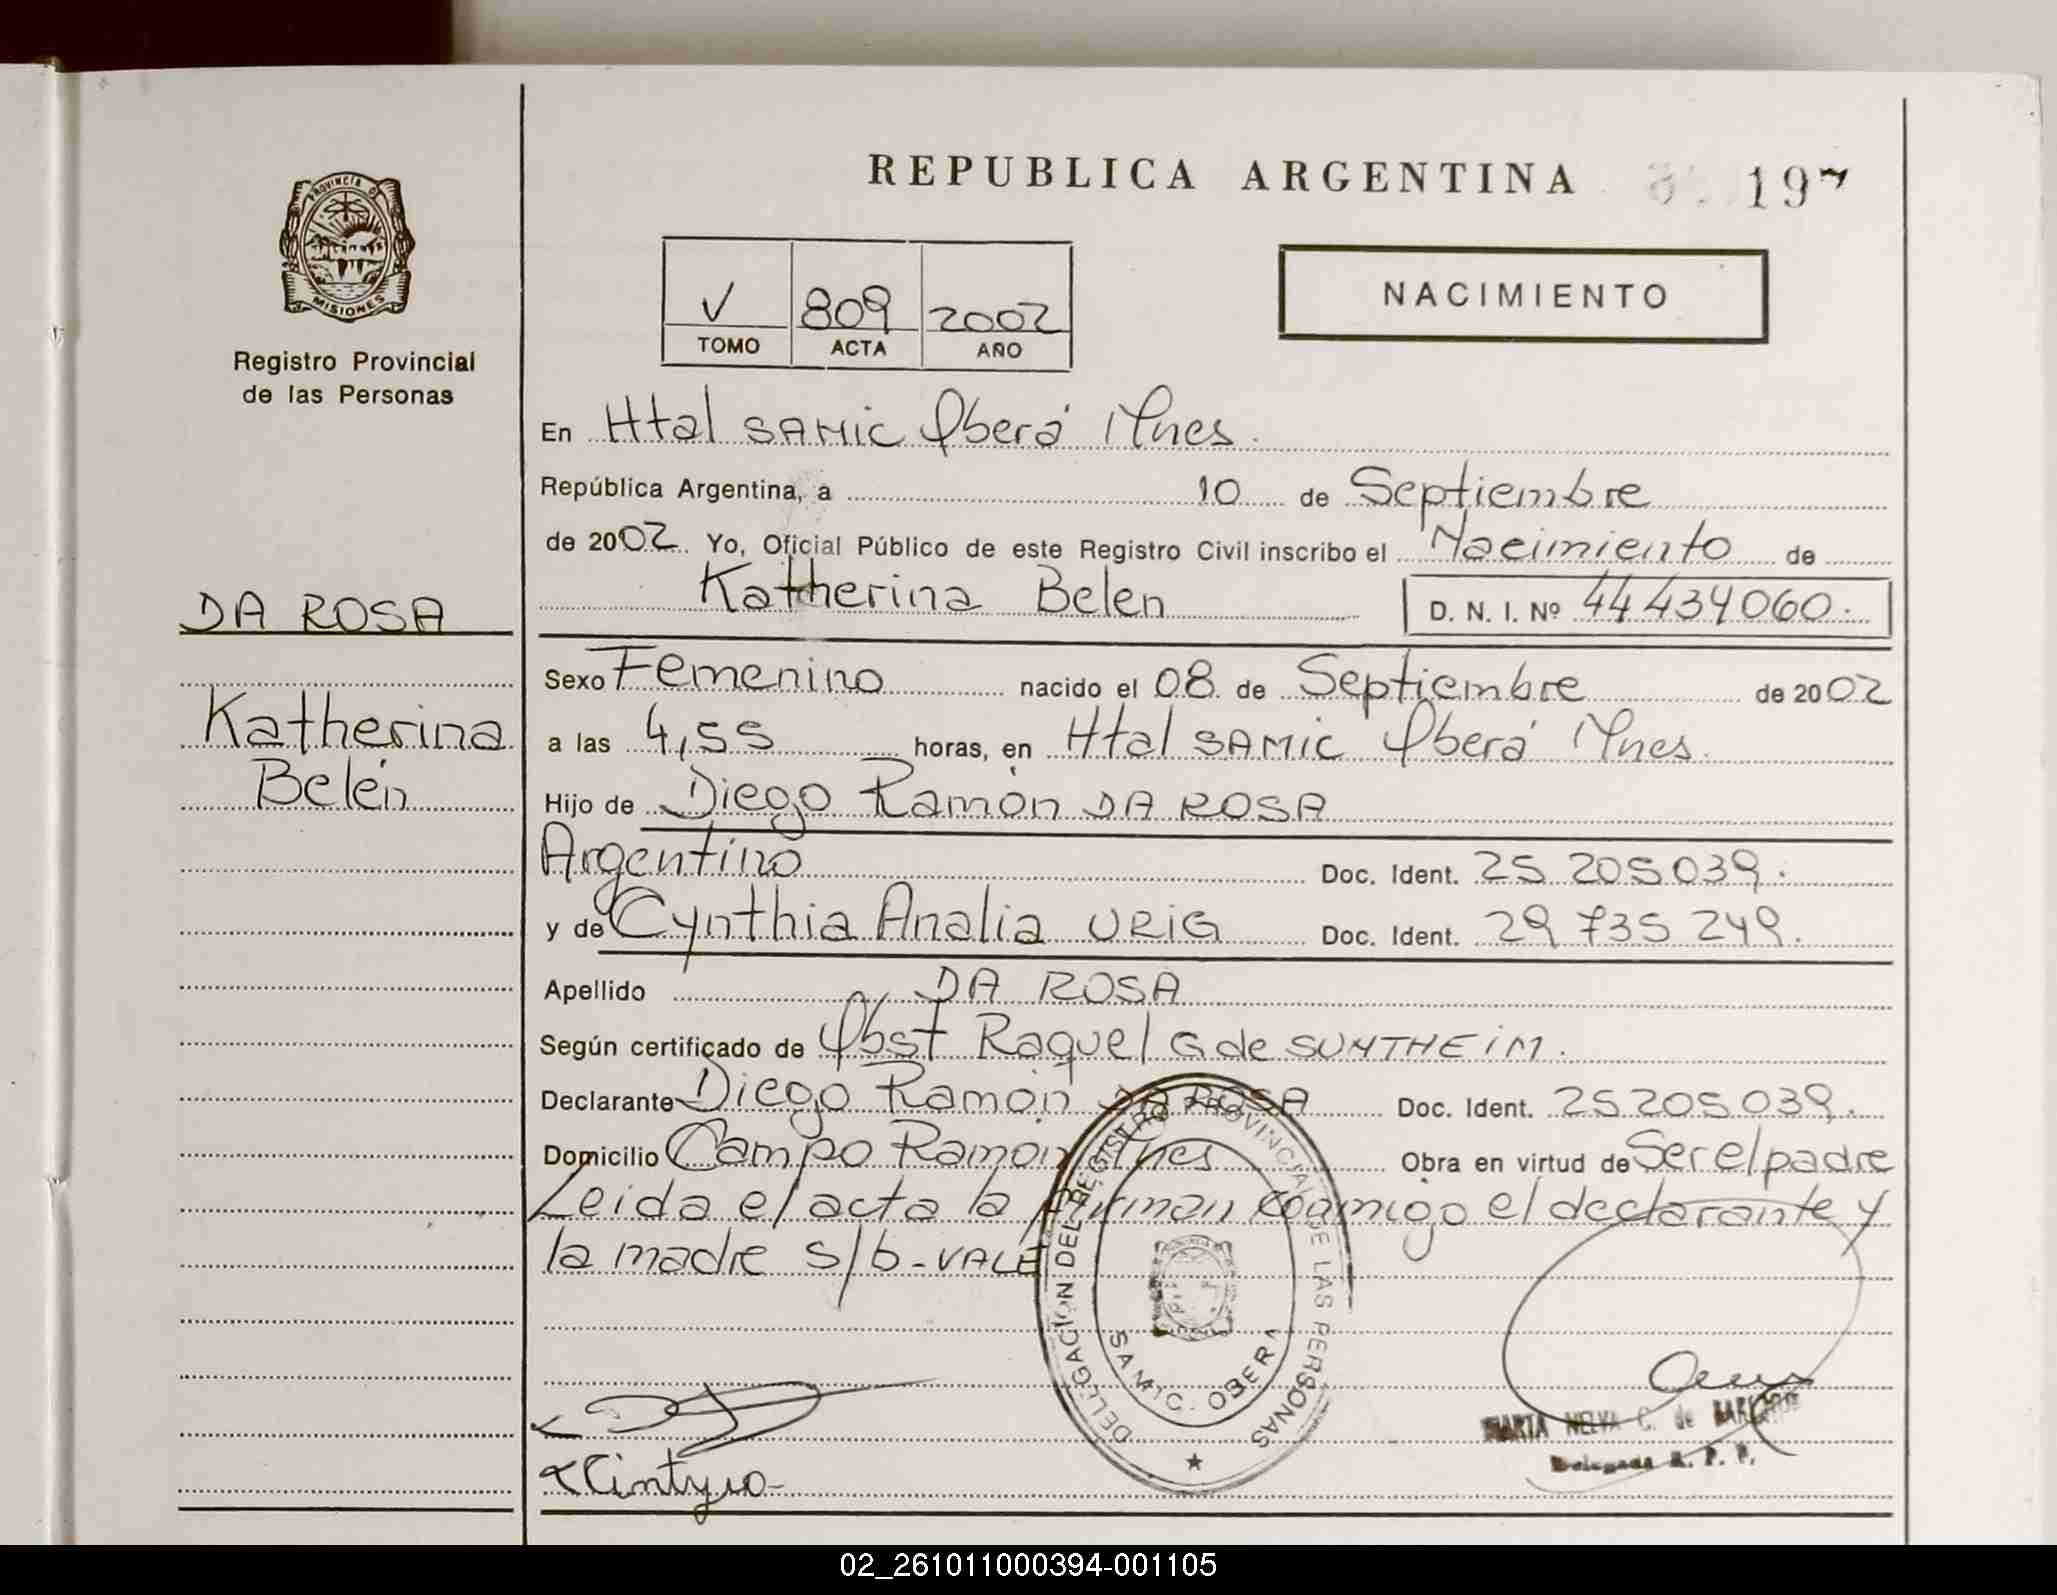 REPUBLICA ARGENTINA 197
PROVINCIA D
MISIONES
Registro Provincial
de las Personas
V 809 2002
TOMO ACTA AÑO
NACIMIENTO
En Htal SAMIC Oberá Mnes.
República Argentina, a 10 de Septiembre
de 2002. Yo, Oficial Público de este Registro Civil inscribo el Nacimiento de
Katherina Belen D. N. I. Nº 44434060.
DA ROSA
Katherina
Belén
Sexo Femenino nacido el 08 de Septiembre de 2002
a las 4,55 horas, en Htal SAMIC Oberá Mnes.
Hijo de Diego Ramón DA ROSA
Argentino Doc. Ident. 25 205 039.
y de Cynthia Analia URIG Doc. Ident. 29 735 249.
Apellido DA ROSA
Según certificado de Obst Raquel G de SUNTHEIM.
Declarante Diego Ramón DA ROSA Doc. Ident. 25205039.
Domicilio Campo Ramón Mnes Obra en virtud de Ser el padre
Leida el acta la firman conmigo el declarante y
la madre s/b-VALE
DELEGACIÓN DEL REGISTRO PROVINCIAL DE LAS PERSONAS
SAMIC. OBERA
MARTA NELVA C. de
Delegada R. P. P.
02_261011000394-001105